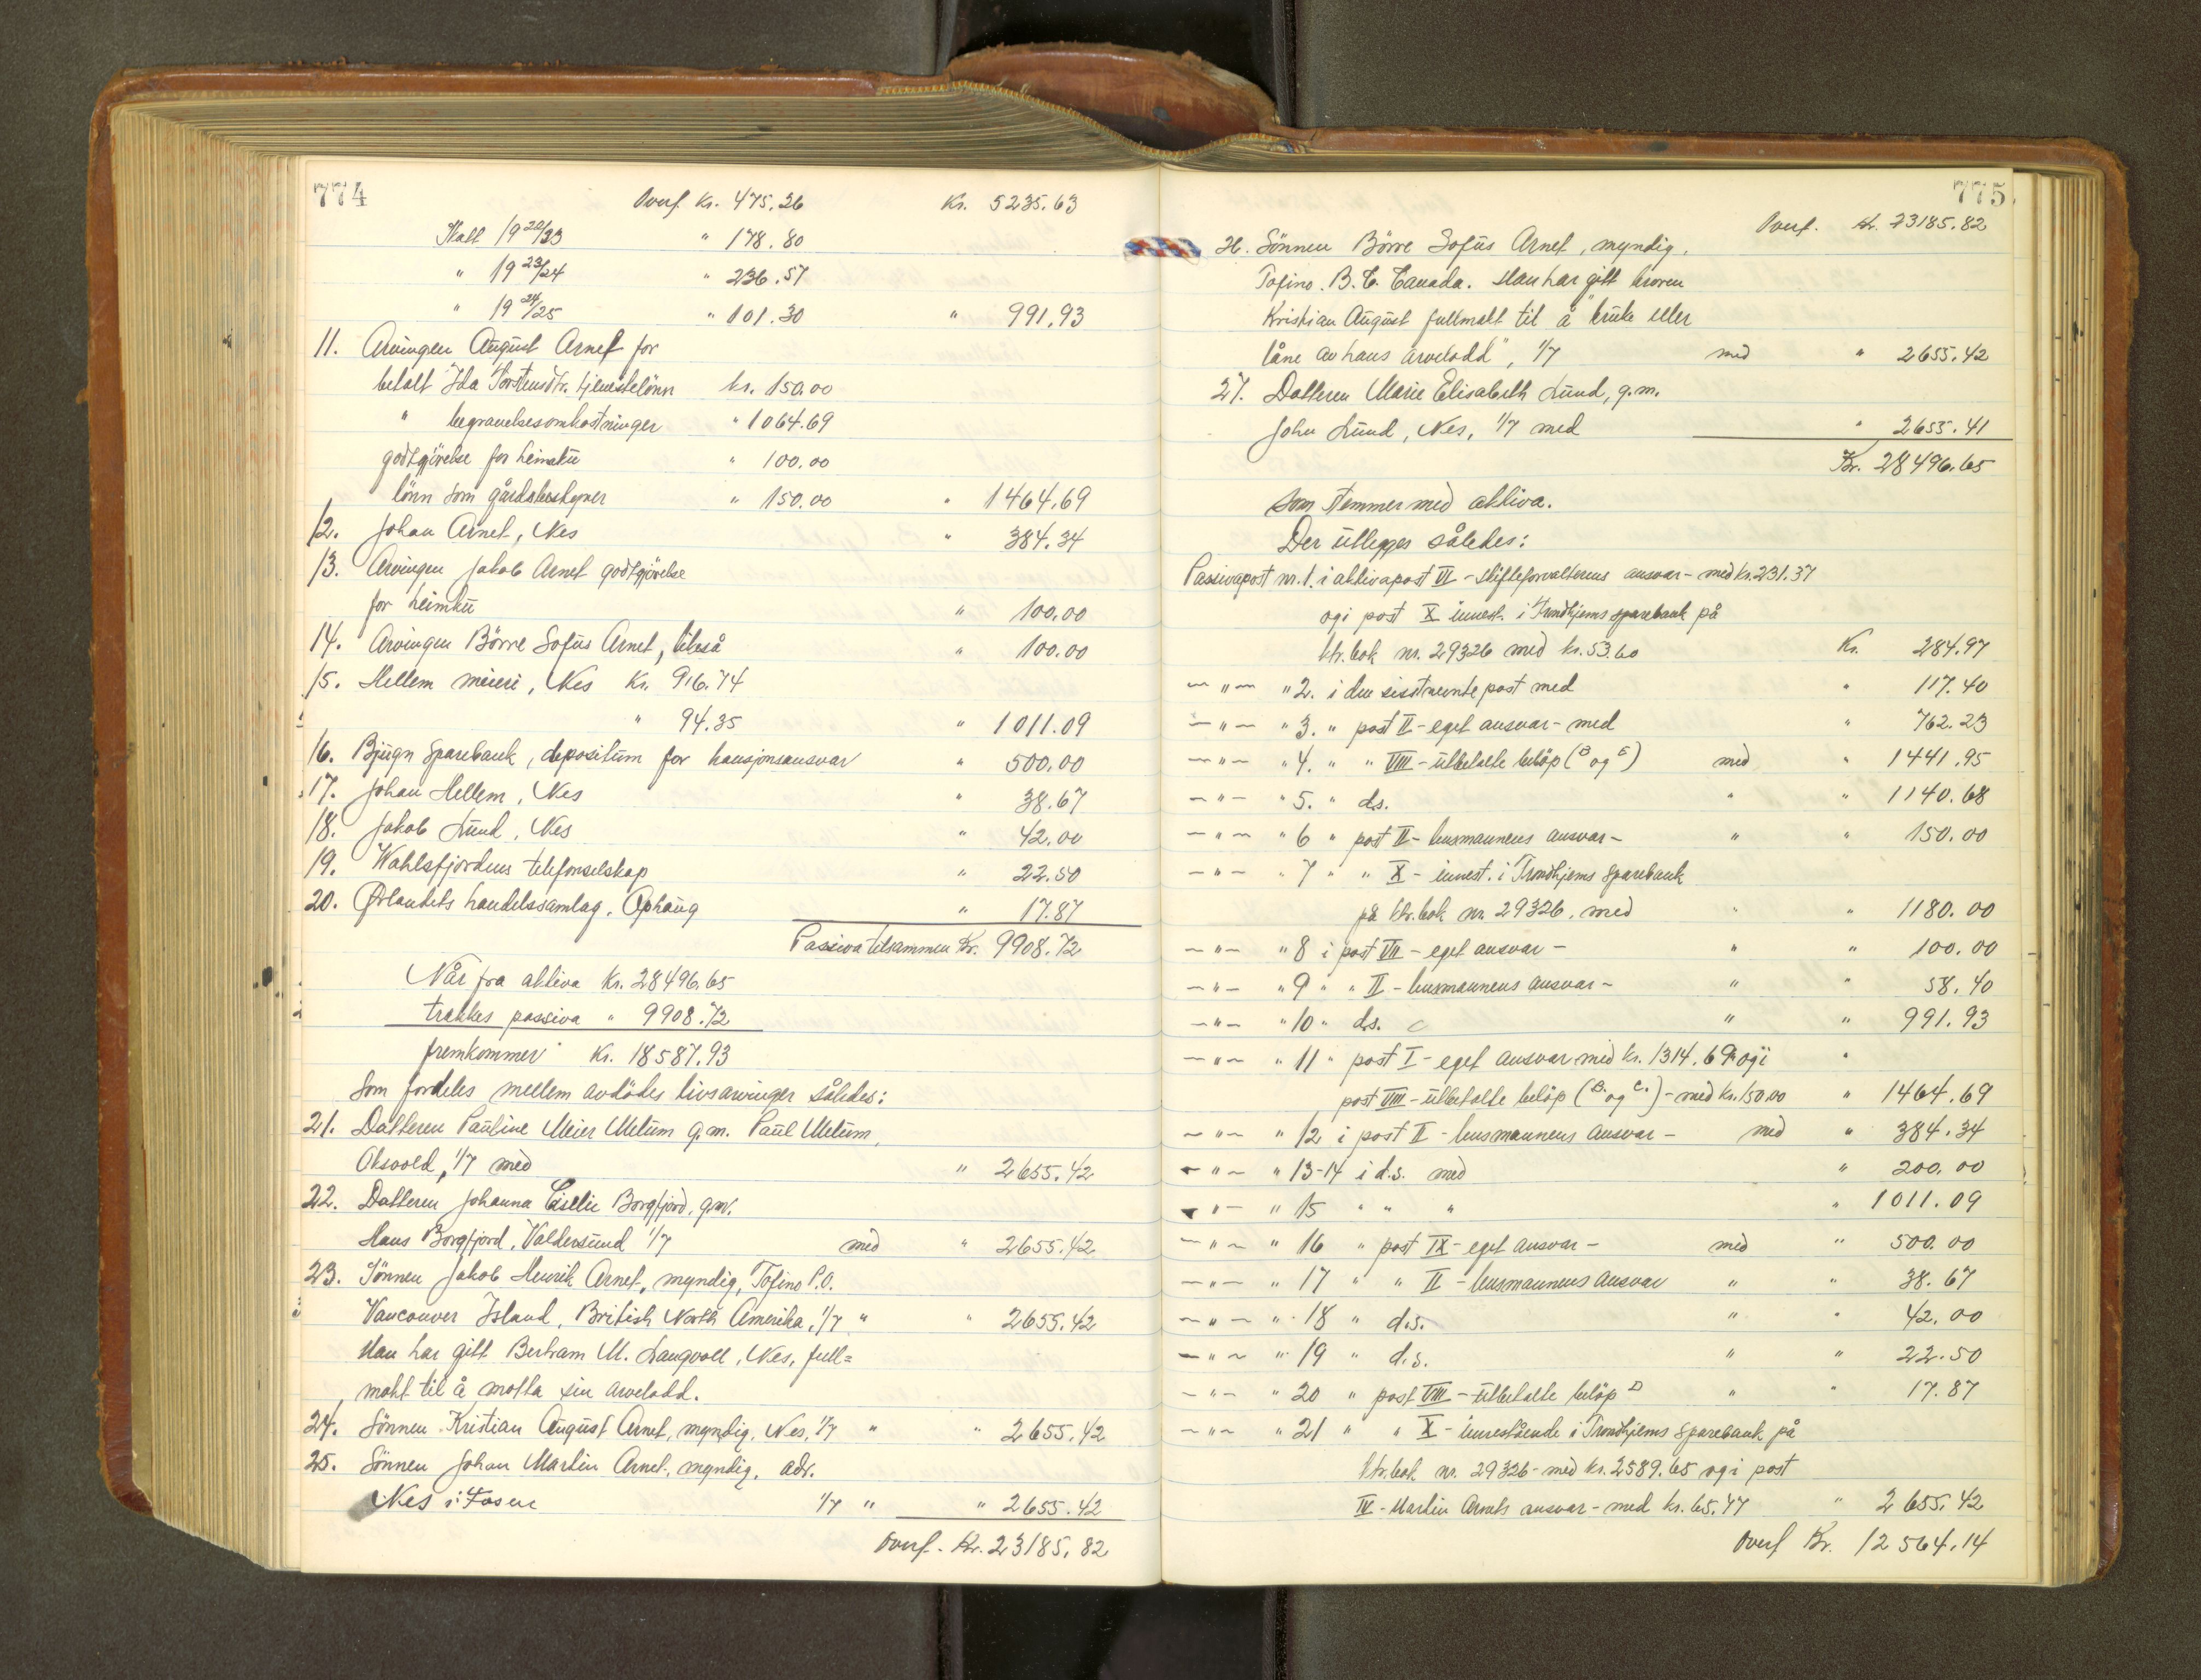 774
Overf. Kr. 475.26 Kr. 5235.63
Skatt 19 22/23 " 178.80
" 19 23/24 " 236.57
" 19 24/25 " 101.30 " 991.93
11. Arvingen August Arnet for
betalt Ida Torstensdtr. tjenestelönn kr. 150.00
" begravelsesomkostninger " 1064.69
godtgjörelse for heimeku " 100.00
lönn som gårdsbestyrer " 150.00 " 1464.69
12. Johan Arnet, Nes " 384.34
13. Arvingen Jakob Arnet godtgjörelse
for heimku " 100.00
14. Arvingen Börre Sofus Arnet, likeså " 100.00
15. Hellem meieri, Nes Kr. 916.74
" 94.35 " 1011.09
16. Bjugn Sparebank, depositum for kausjonsansvar " 500.00
17. Johan Hellem, Nes " 38.67
18. Jakob Lund, Nes " 42.00
19. Valsfjordens telefonselskap " 22.50
20. Ørlandets handelssamlag, Ophaug " 17.87
Passiva tilsammen Kr. 9908.72
Når fra aktiva Kr. 28496.65
trekkes passiva " 9908.72
fremkommer Kr. 18587.93
som fordeles mellem avdödes livsarvinger således:
21. Datteren Pauline Meier Uletum g.m. Paul Uletum,
Oksvold, 1/7 med " 2655.42
22. Datteren Johanna Borgfjord, g.m.
Hans Borgfjord, Valdersund 1/7 med " 2655.42
23. Sönnen Jakob Henrik Arnet, myndig, Tofino P.O.
Vancouver Island, British North Amerika, 1/7 " " 2655.42
Han har gitt Bertram M. Langvoll, Nes, full=
makt til å motta sin arvelodd.
24. Sönnen Kristian August Arnet, myndig, Nes, 1/7 " " 2655.42
25. Sönnen Johan Martin Arnet, myndig, adr.
Nes i Fosen 1/7 " " 2655.42
Overf. Kr. 23185.82
775.
Overf. kr. 23185.82
Sönnen Börre Sofus Arnet, myndig,
Tofino. B. C. Canada. Han har gitt broren
Kristian August fullmakt til å "bruke eller
låne av hans arvelodd", 1/7 med " 2655.42
27. Datteren Marie Elisabeth Lund, g.m.
John Lund, Nes, 1/7 med " 2655.41
Kr. 28496.65
som stemmer med aktiva.
Der utlegges således:
Passivapost nr. 1. i aktivapost VI - skifteforvalterens ansvar - med kr. 231.37
og i post X innest. i Trondhjems sparebank på
ktr.bok nr. 29326 med kr. 53.60 Kr. 284.97
— " — " 2. i den sistnevnte post med " 117.40
— " — " 3. " post II - eget ansvar - med " 762.23
— " — " 4. " " VIII - utbetalte belöp (B og E) med " 1441.95
— " — " 5. " d.s. " " 1140.68
— " — " 6 " post II - husmannens ansvar - " " 150.00
— " — " 7 " " X - innest. i Trondhjems Sparebank
på ktr.bok nr. 29326, med " " 1180.00
— " — " 8 i post VII - eget ansvar - " " 100.00
— " — " 9 " " II - husmannens ansvar - " " 58.40
— " — " 10 " d.s. " " 991.93
— " — " 11 " post I - eget ansvar med kr. 1314.69 og i "
post VIII - utbetalte belöp (B. og C.) - med kr. 150.00 " 1464.69
— " — " 12 i post II - husmannens ansvar - med " 384.34
— " — " 13-14 i d.s. med " 200.00
— " — " 15 " " " " 1011.09
— " — " 16 " post IX - eget ansvar - med " 500.00
— " — " 17 " " II - husmannens ansvar " " 38.67
— " — " 18 " d.s. " " 42.00
— " — " 19 " d.s. " " 22.50
— " — " 20 " post VIII - utbetalte belöp D " " 17.87
— " — " 21 " " X - innestående i Trondhjems Sparebank på
ktr.bok nr. 29326 - med kr. 2589.65 og i post
IV - Martin Arnets ansvar - med kr. 65.77 " 2655.42
Overf Kr. 12564.14